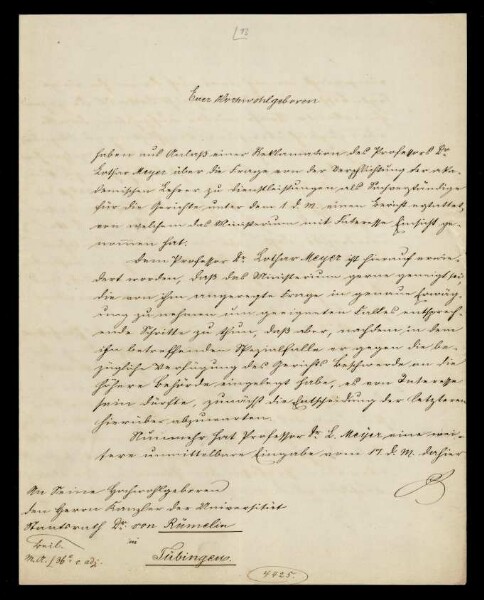 [12
Euer Hochwohlgeboren
haben aus Anlaß einer Reklamation des Professors Dr.
Lothar Meyer über die Frage von der Verpflichtung der aka-
demischen Lehrer zu Dienstleistungen als Sachverständige
für die Gerichte unter dem 1. d. M. einen Bericht erstattet,
von welchem das Ministerium mit Interesse Einsicht ge-
nommen hat.
Dem Professor Dr. Lothar Meyer ist hierauf erwie-
dert worden, daß das Ministerium gerne geneigt sei,
die von ihm angeregte Frage in genaue Erwäg-
ung zu nehmen und geeigneten Falles entsprech-
ende Schritte zu thun, daß aber, nachdem in dem
ihn betreffenden Spezialfalle er gegen die be-
zügliche Verfügung des Gerichts Beschwerde an die
höhere Behörde eingelegt habe, es von Interesse
sein dürfte, zunächst die Entscheidung der letzteren
hierüber abzuwarten.
Nunmehr hat Professor Dr. L. Meyer eine wei-
tere unmittelbare Eingabe vom 17. d. M. dahier
An Seine Hochwohlgeboren
den Herrn Kanzler der Universität
Staatsrath Dr. von Rümelin
in
Tübingen.
Beil.
4425.